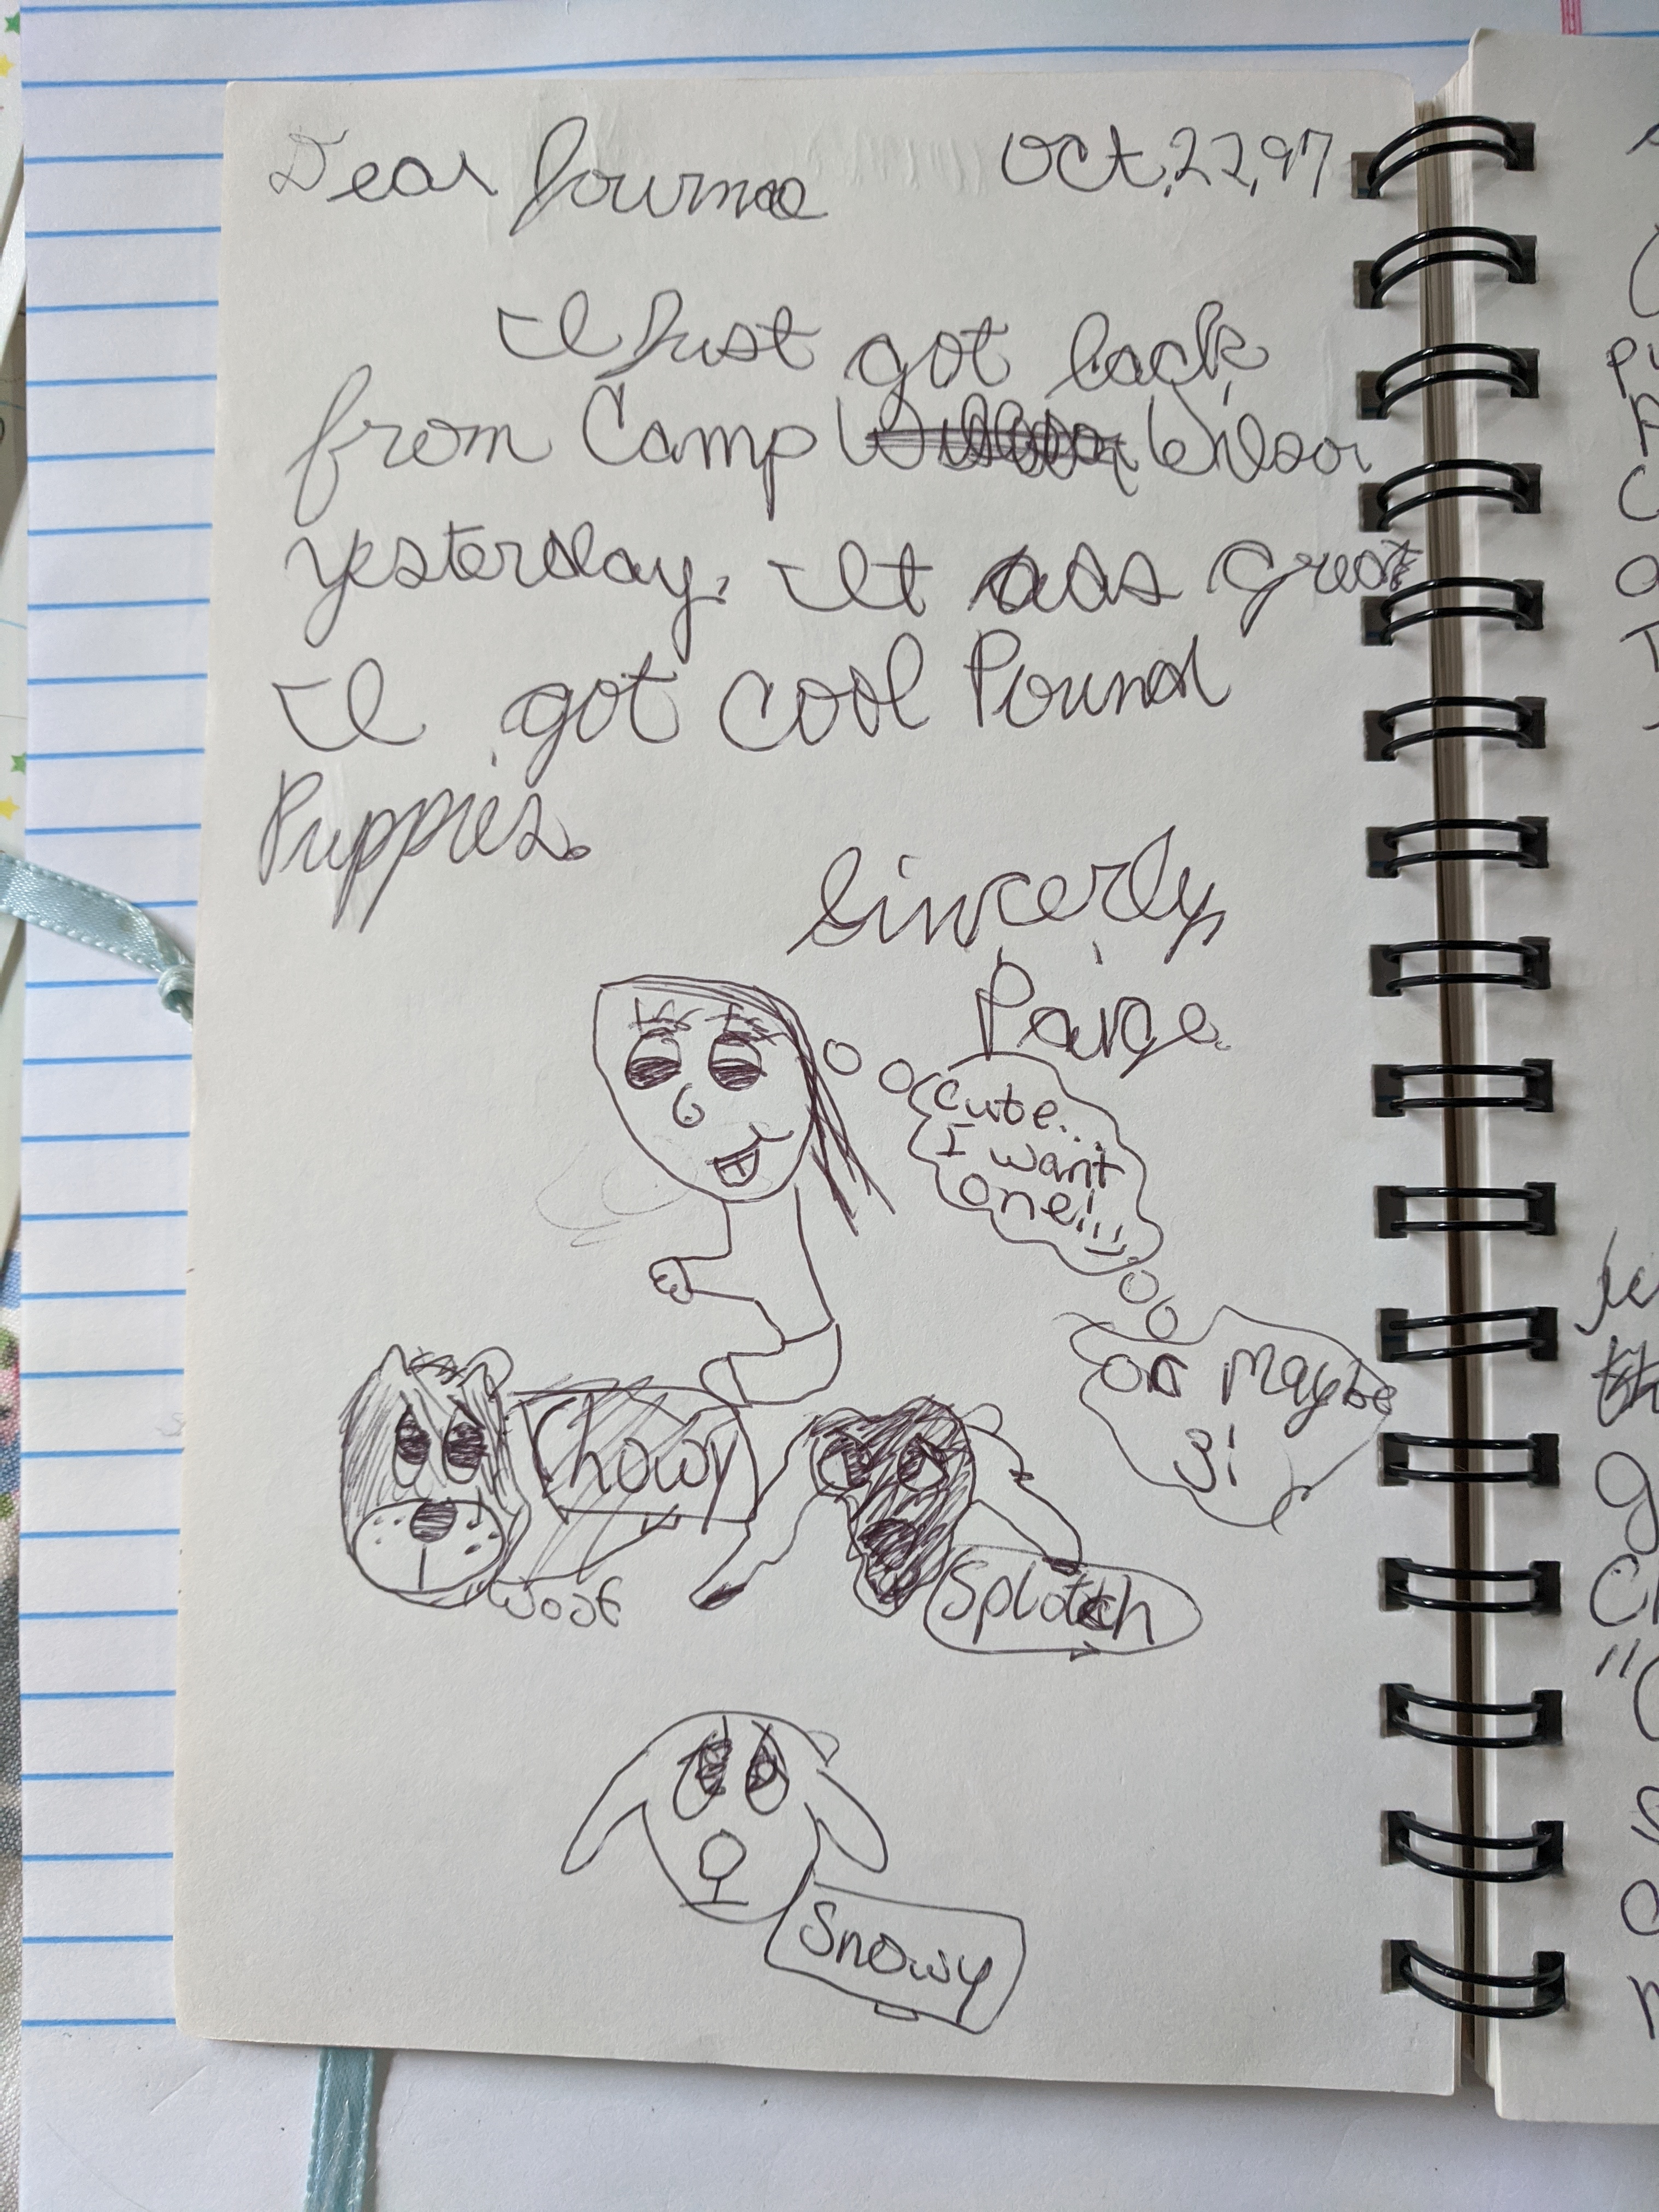 Dear Journal Oct,22,97
I Just got back
from Camp Wilson
yesterday. It was great
I got cool Pound
Puppies.
Sincerly,
Paige
Cute...
I want
one!!!
or Maybe
3!
Chowy
woof
Splotch
Snowy